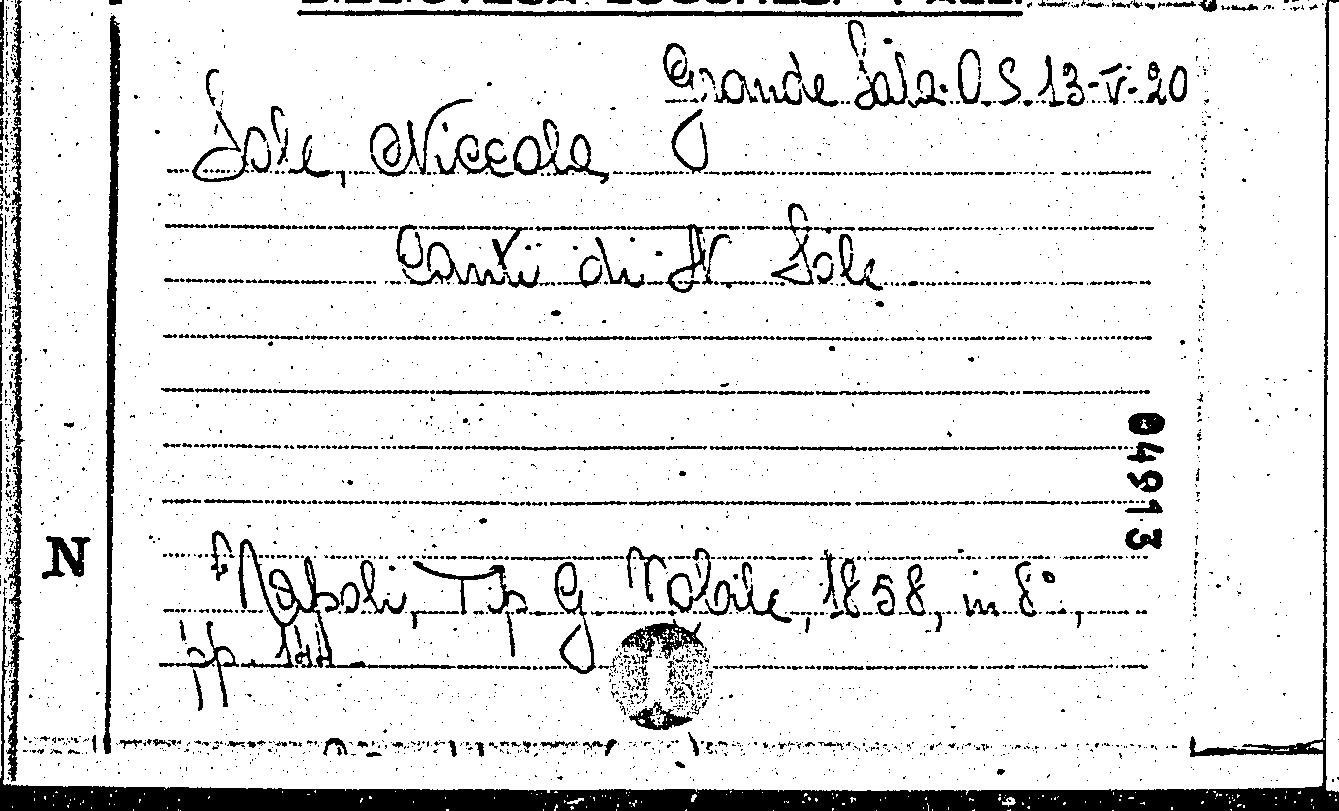 Grande Sala. O. S. 13-V-20
Sole, Niccola
Canti di N. Sole
04913
N
Napoli, Tip. G. Nobile, 1858, in 8°,
pp. 144.